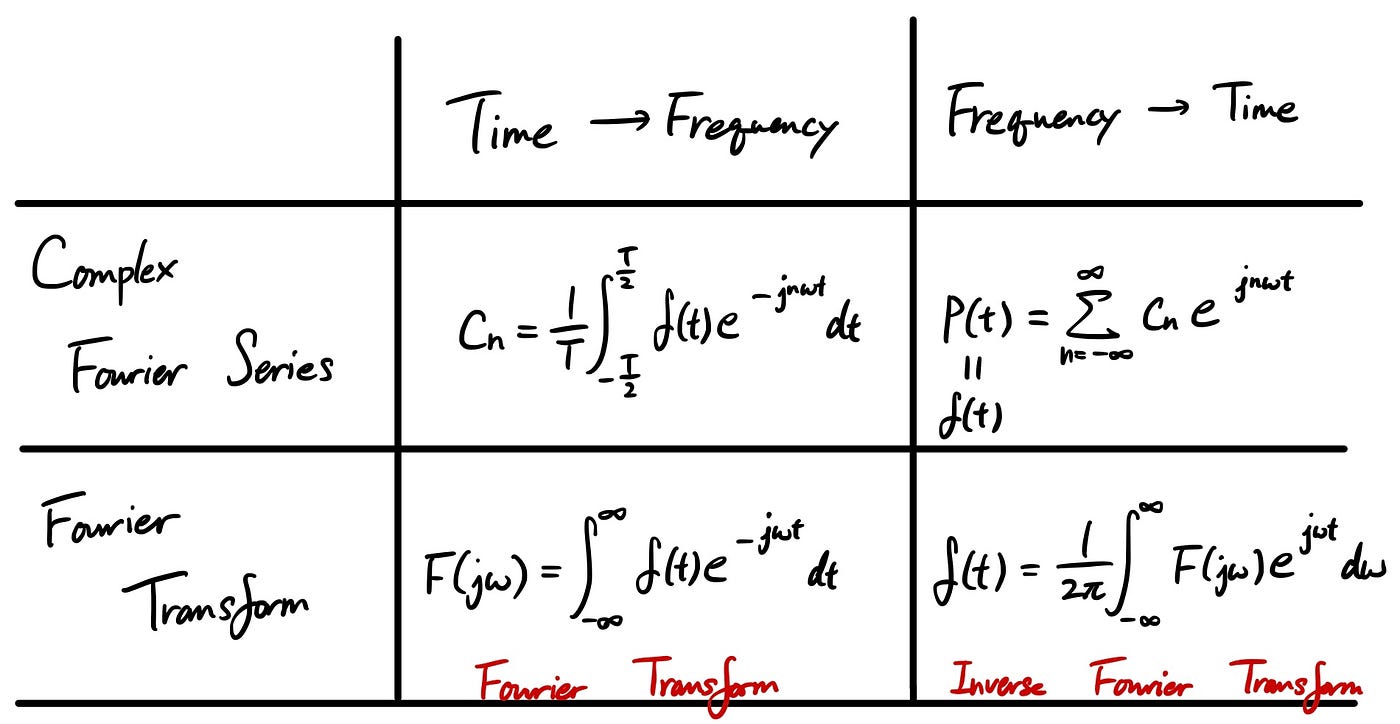 Time → Frequency
Frequency → Time
Complex
Fourier Series
Cn = 1/T ∫_{-T/2}^{T/2} f(t)e^{-jnωt} dt
P(t) = ∑_{n=-∞}^{∞} Cn e^{jnωt}
=
f(t)
Fourier
Transform
F(jω) = ∫_{-∞}^{∞} f(t)e^{-jωt} dt
Fourier Transform
f(t) = 1/2π ∫_{-∞}^{∞} F(jω)e^{jωt} dω
Inverse Fourier Transform